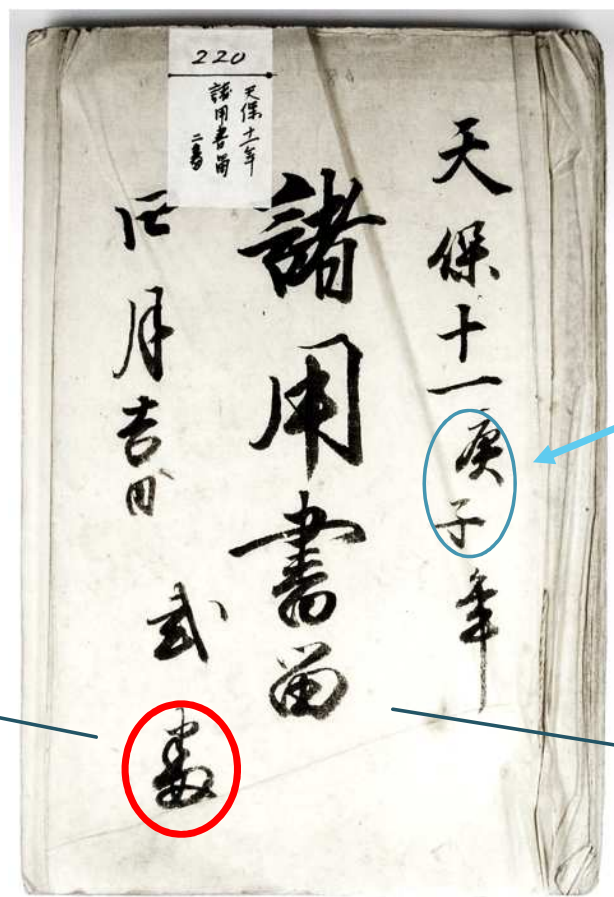 220
天保十一年
諸用書留
二番
天保十一庚子年
諸用書留
四月吉日 弐番